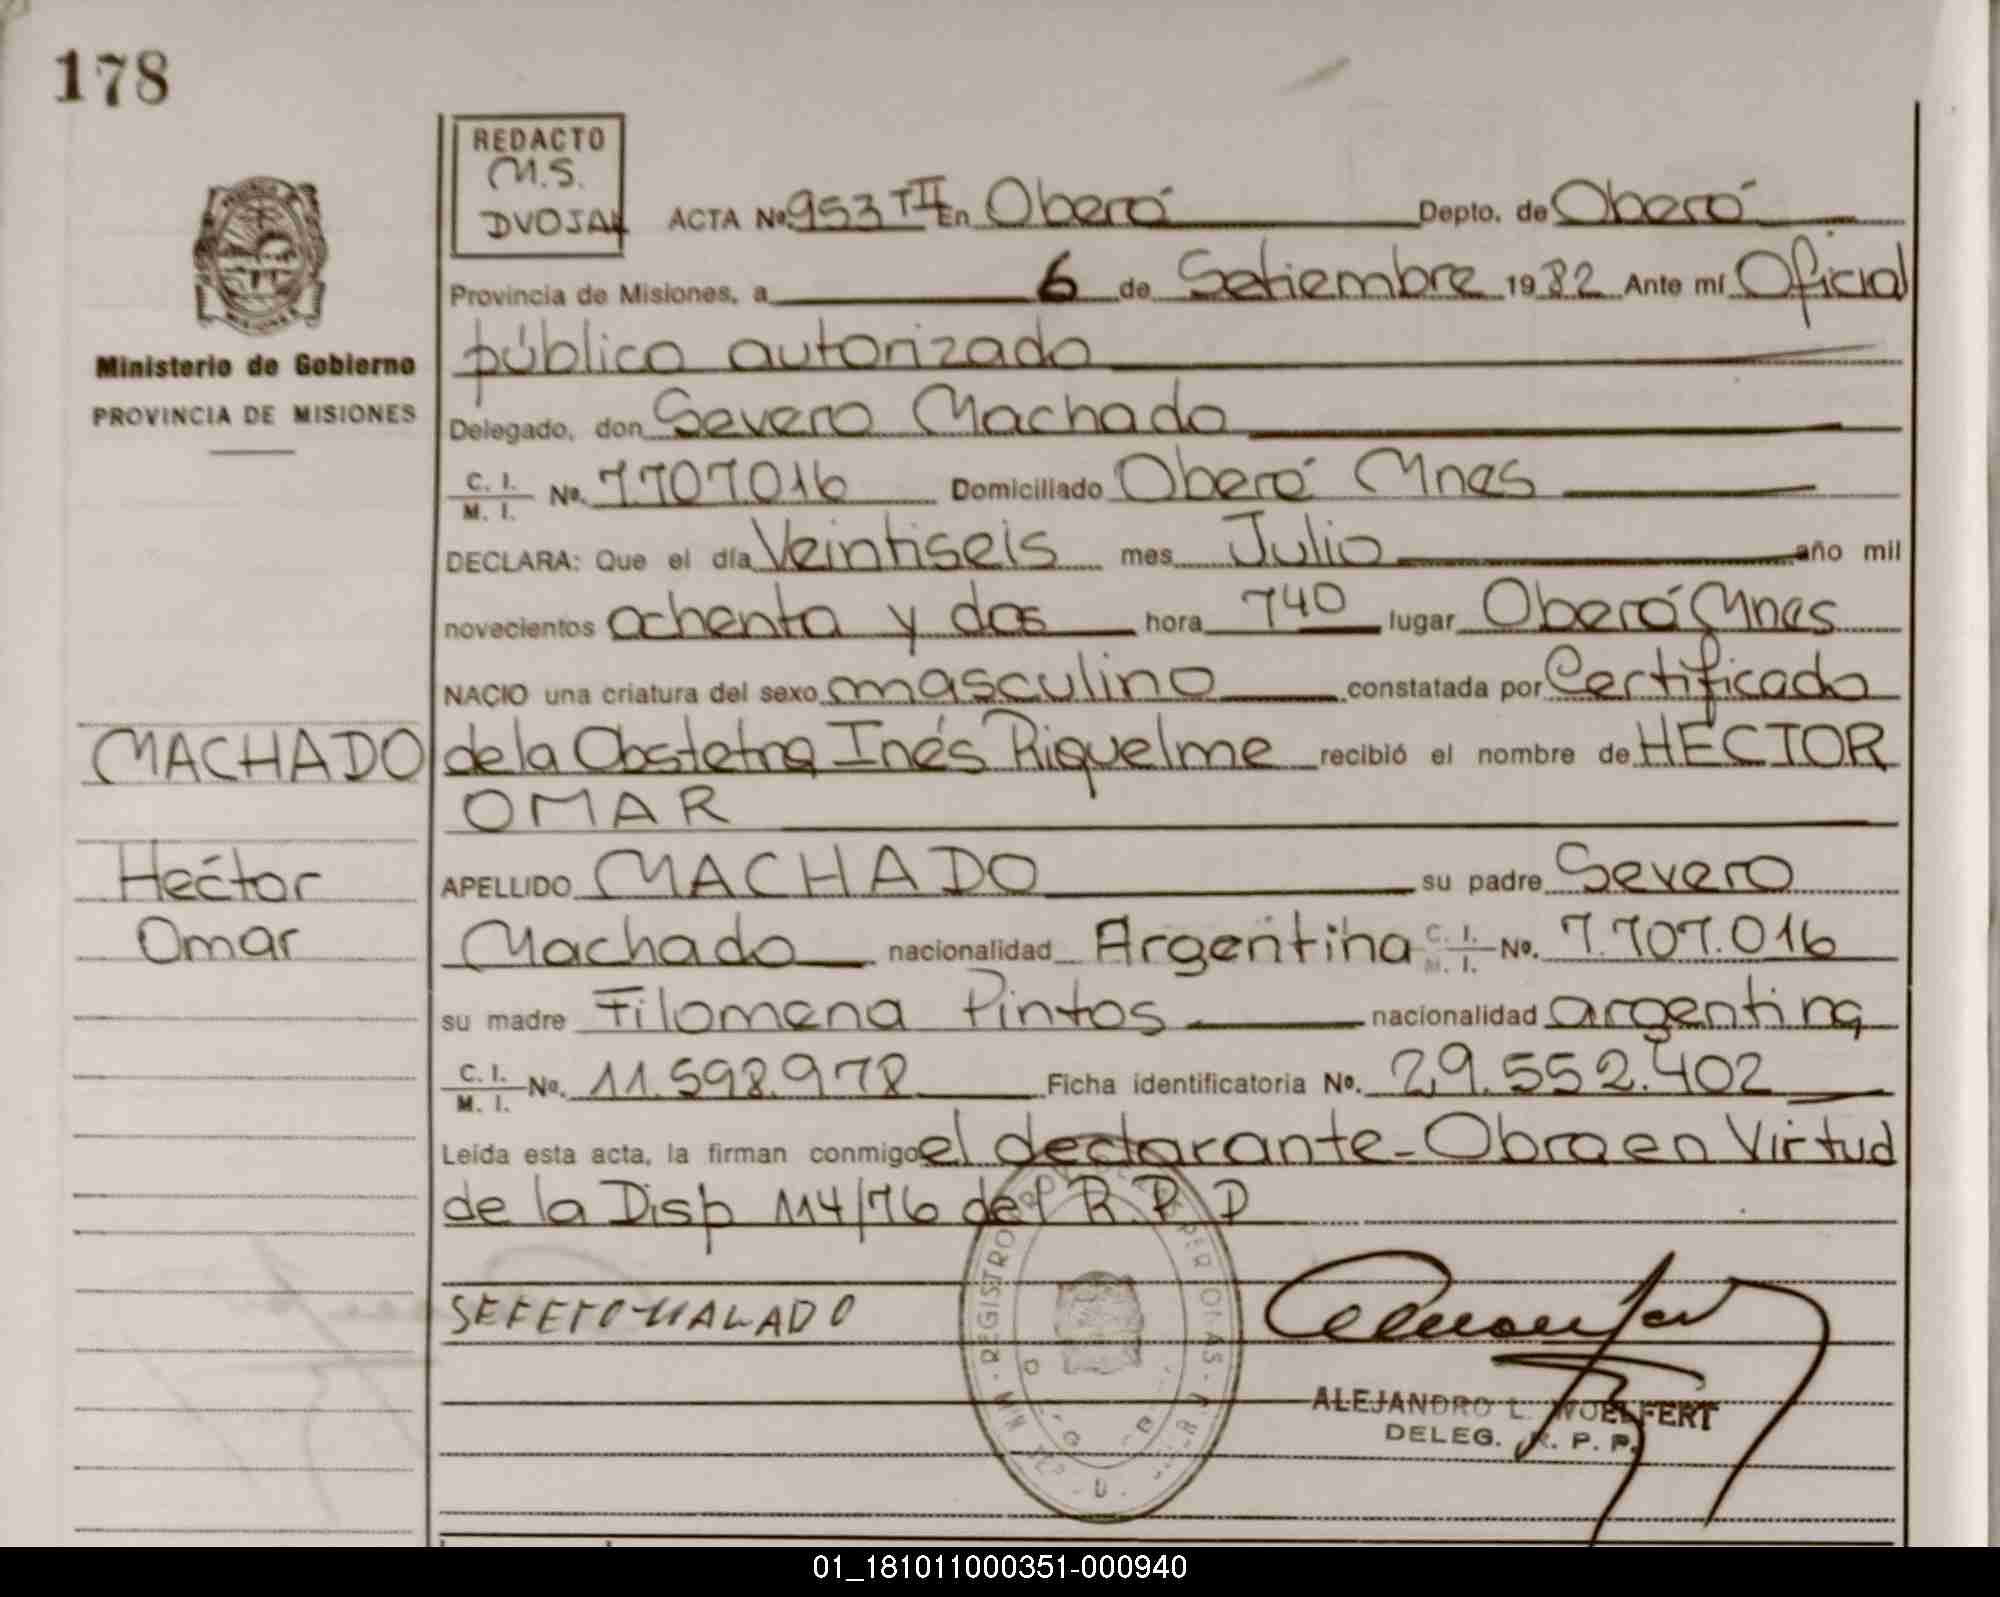 178
REDACTO
M.S.
DVOJAK
ACTA No. 953 TII En Oberá Depto. de Oberá
Provincia de Misiones, a 6 de Setiembre 1982 Ante mí Oficial
público autorizado
Delegado, don Severo Machado
C. I. / M. I. No. 7.707.016 Domiciliado Oberá Mnes
DECLARA: Que el día Veintiseis mes Julio año mil
novecientos ochenta y dos hora 740 lugar Oberá Mnes
NACIO una criatura del sexo masculino constatada por Certificado
de la Obstetra Inés Riquelme recibió el nombre de HÉCTOR
OMAR
APELLIDO MACHADO su padre Severo
Machado nacionalidad Argentina C. I. / M. I. No. 7.707.016
su madre Filomena Pintos nacionalidad argentina
C. I. / M. I. No. 11.598.978 Ficha identificatoria No. 29.552.402
Leída esta acta, la firman conmigo el declarante - Obra en Virtud
de la Disp 114/76 del R.P.P
Ministerio de Gobierno
PROVINCIA DE MISIONES
MACHADO
Héctor
Omar
REGISTRO
ALEJANDRO L. WOELFERT
DELEG. R. P. P.
01_181011000351-000940